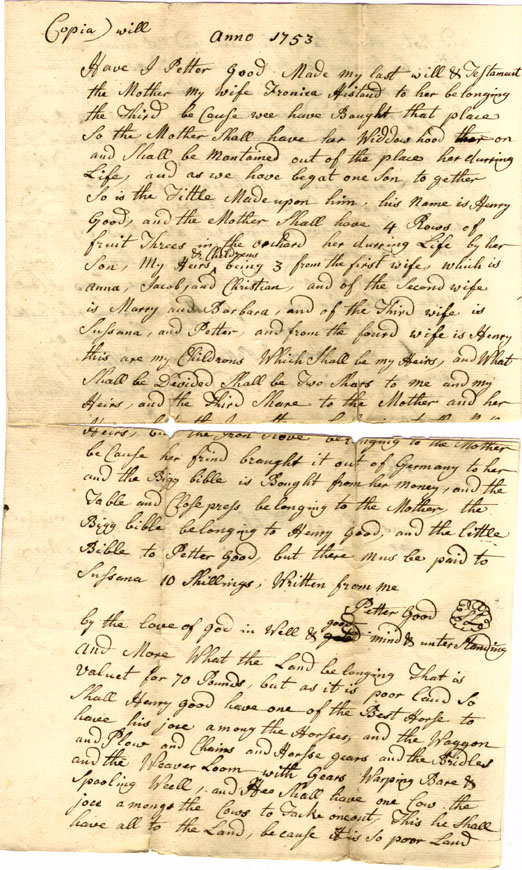 Copia) will
Anno 1753
Have I Petter Good Made my last will & Testament
the Mother my wife Fronica Hisland to her belonging
the Third be Cause wee have Bought that place
So the Mother Shall have her Widdow hood on
and Shall be Mantained out of the place her durring
Life, and as we have begat one Son to gether
So is the Tittle Made upon him, his Name is Henry
Good, and the Mother Shall have 4 Rows of
fruit Threes in the orchard her durring Life by her
Son, My Heirs or Childrens being 3 from the first wife, which is
anna, Jacob, and Christian, and of the Second wife
is Marry and Barbara, and of the Third wife is
Sussana, and Petter, and from the fourd wife is Henry
this are my Childrens Which Shall be my Heirs, and What
Shall be Devided Shall be Two Shars to me and my
Heirs, and the Third Share to the Mother and her
Heirs, but the Iron Stove belonging to the Mother
be Cause her frind braught it out of Germany to her
and the Bigg bible is Bought from her Money, and the
Table and Close press belonging to the Mother, the
Bigg bible belonging to Henry Good, and the little
Bible to Petter Good, but there mus be paid to
Sussana 10 Shillings, Written from me
Petter Good
by the Love of God in Well & good mind & unter Standing
and More What the Land belonging That is
valuet for 70 Pounds, but as it is poor land So
Shall Henry Good have one of the Best Horse to
have his joce among the Horses, and the Waggon
and Plow and Chains and Horsse gears and the Bridles
and the Weaver Loom with Gears Warping Bare &
Spooling Weell, and Heo Shall have one Cow the
joce amongs the Cows to Tacke one out, This he Shall
have all to the Land, because it is So poor Land